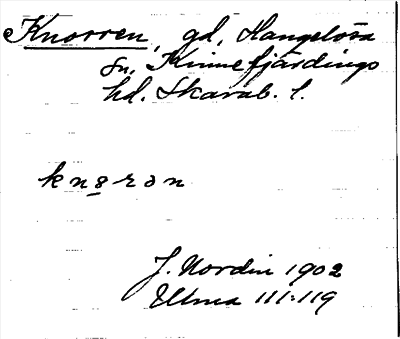 Knorren, gd, Hangelösa
sn, Kinnefjärdings
hd. Skarab. l.
knɞrən
J. Nordin 1902
Utma 111:119